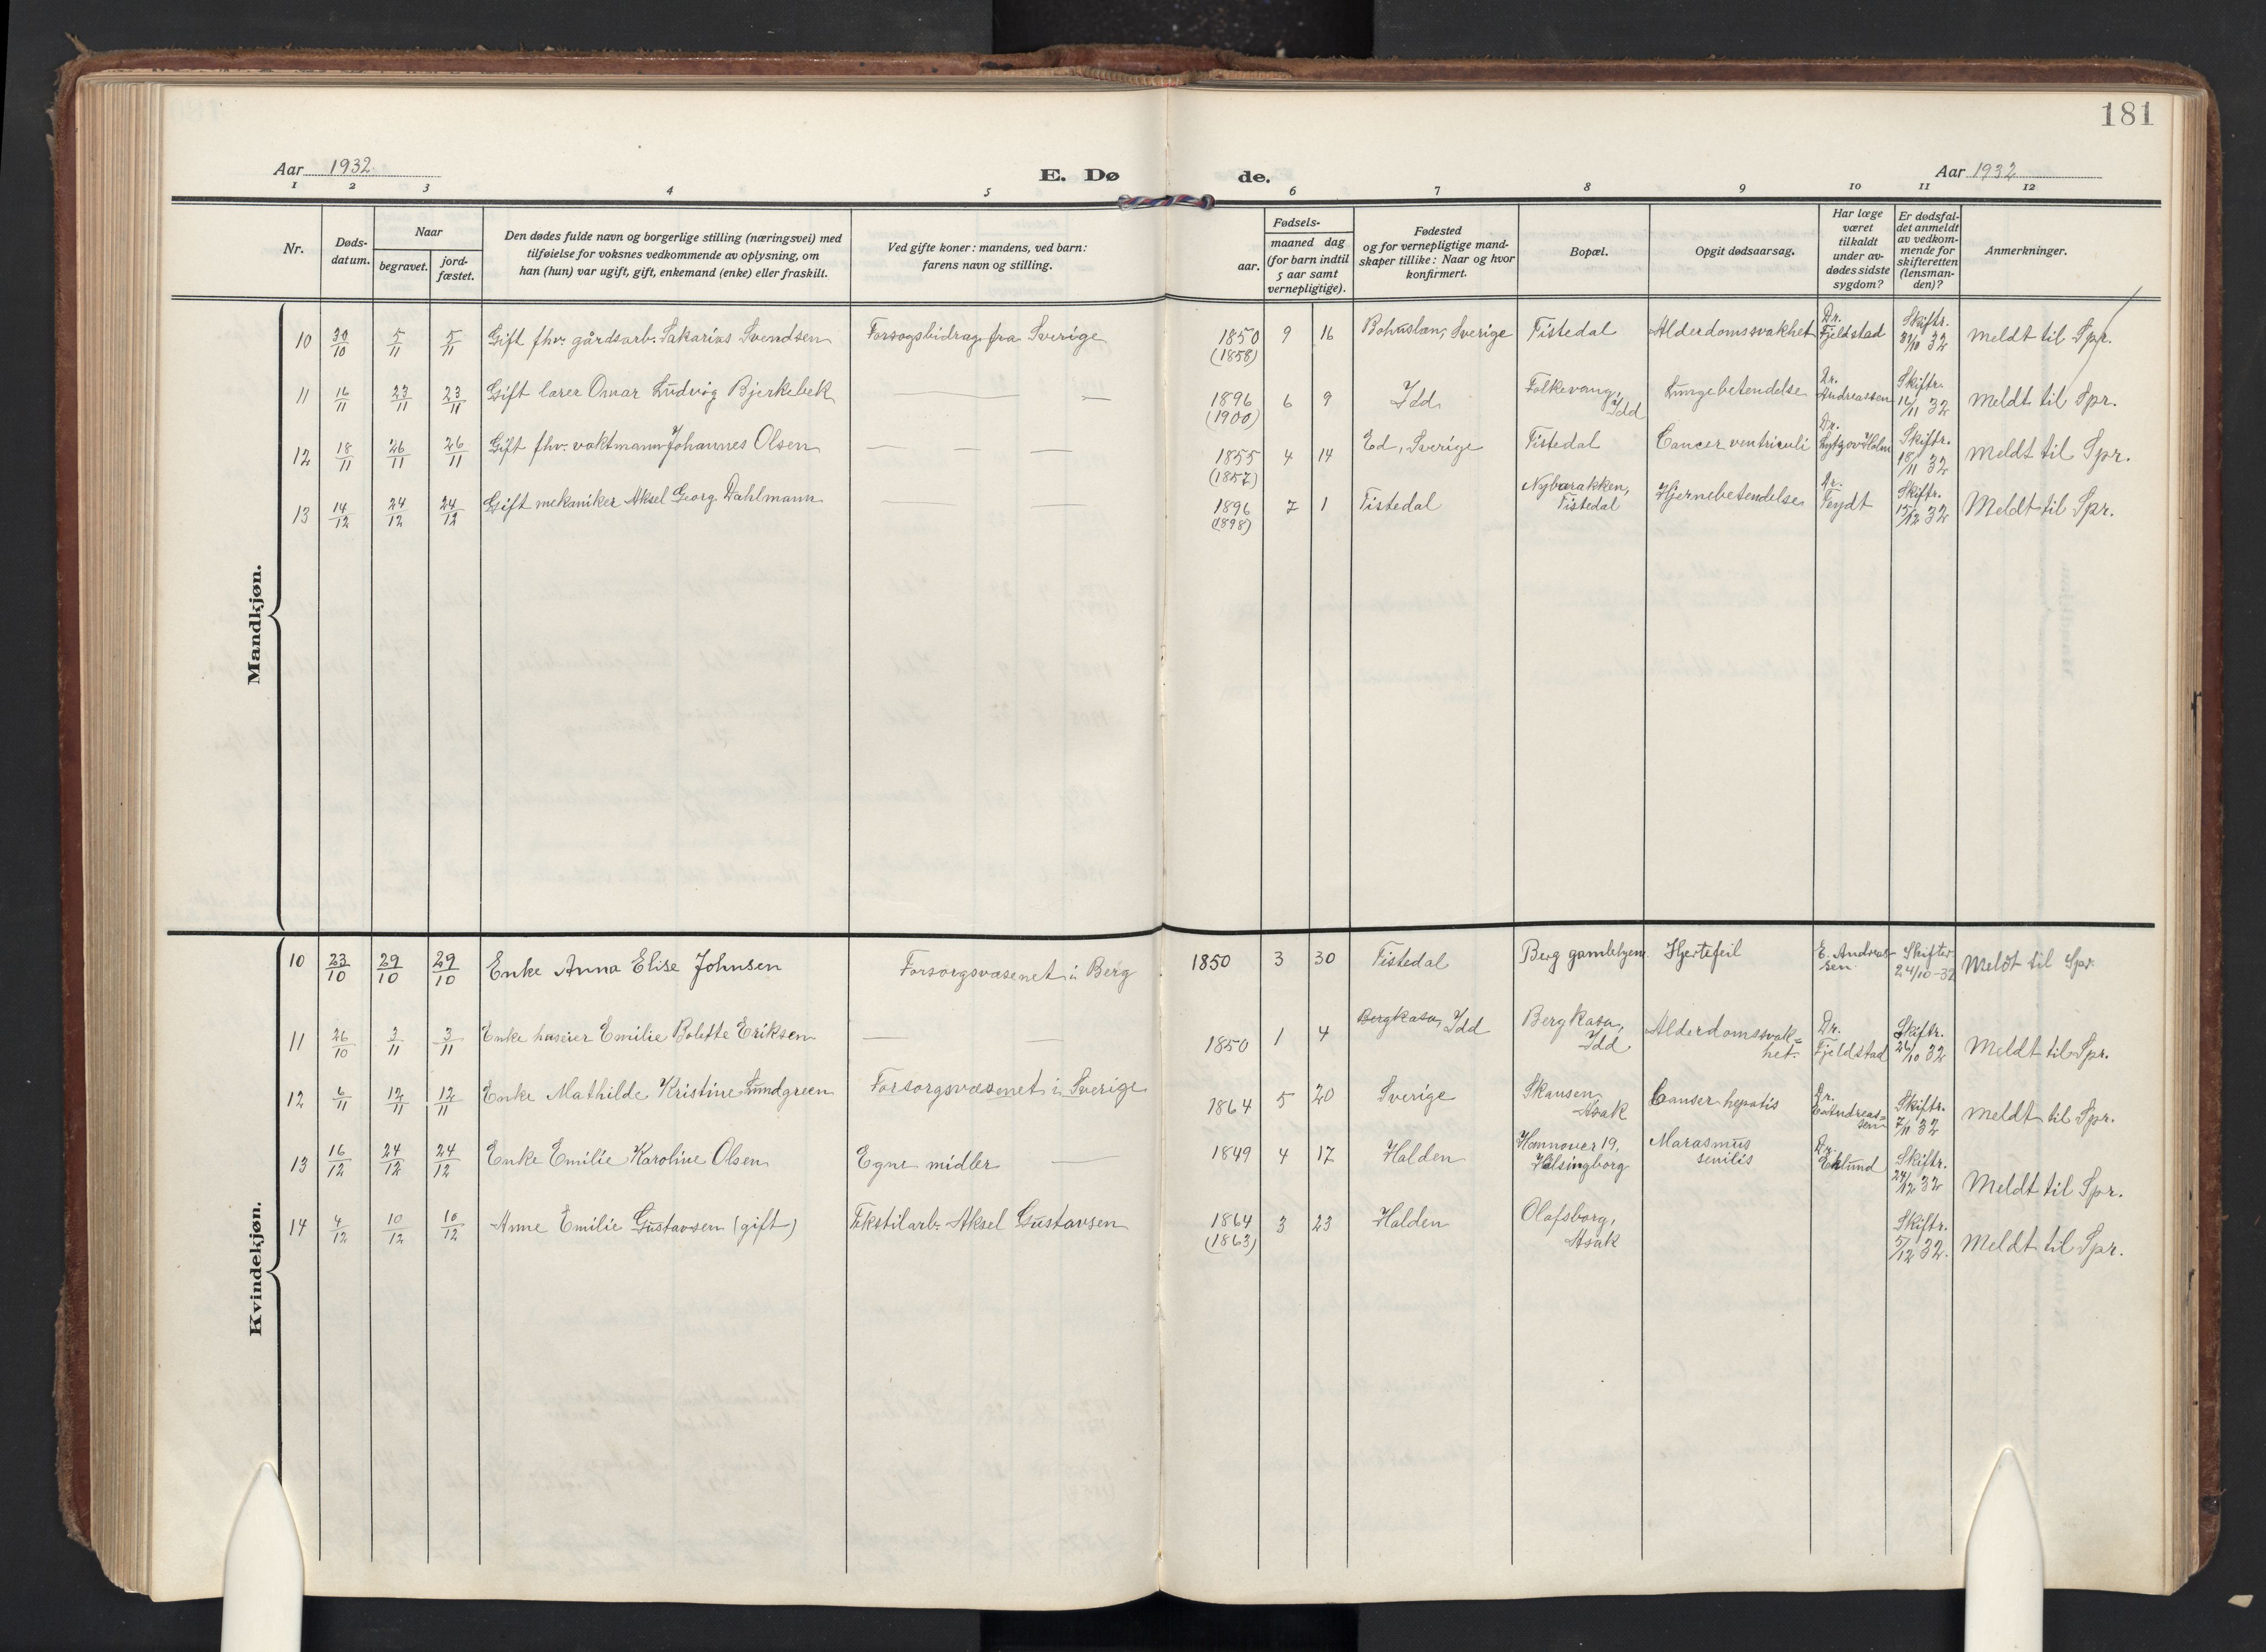 181
Aar 1932
E. Dø
de.
Aar 1932
1 2 3 4 5 6 7 8 9 10 11 12
Nr.
Døds-
datum.
Naar
begravet.
jord-
fæstet.
Den dødes fulde navn og borgerlige stilling (næringsvei) med
tilføielse for voksnes vedkommende av oplysning, om
han (hun) var ugift, gift, enkemand (enke) eller fraskilt.
Ved gifte koner: mandens, ved barn:
farens navn og stilling.
Fødsels-
aar.
maaned dag
(for barn indtil
5 aar samt
vernepligtige).
Fødested
og for vernepligtige mand-
skaper tillike: Naar og hvor
konfirmert.
Bopæl.
Opgit dødsaarsag.
Har læge
været
tilkaldt
under av-
dødes sidste
sygdom?
Er dødsfal-
det anmeldt
av vedkom-
mende for
skifteretten
(lensman-
den)?
Anmerkninger.
Mandkjøn.
10 30/10 5/11 5/11 Gift fhv. gårdsarb. Sakarias Svendsen Forsorgsbidrag fra Sverige 1850 (1858) 9 16 Bohuslen, Sverige Tistedal Alderdomssvakhet Dr. Fjeldstad Skiftr. 31/10 32 Meldt til Spr.
11 16/11 23/11 23/11 Gift lærer Omar Ludvig Bjerkebek — — 1896 (1900) 6 9 Idd Folkevang, Idd Lungebetendelse Dr. Andreassen Skiftr. 16/11 32 Meldt til Spr.
12 18/11 26/11 26/11 Gift fhv. vaktmann Johannes Olsen — — — 1855 (1857) 4 14 Ed, Sverige Tistedal Cancer ventriculi Dr. Lytzow Holm Skiftr. 18/11 32 Meldt til Spr.
13 14/12 24/12 24/12 Gift mekaniker Aksel Georg Dahlmann — — 1896 (1898) 7 1 Tistedal Nybarakken, Tistedal Hjernebetendelse Dr. Feydt Skiftr. 15/12 32 Meldt til Spr.
Kvindekjøn.
10 23/10 29/10 29/10 Enke Anna Elise Johnsen Forsorgsvæsenet i Berg 1850 3 30 Tistedal Berg gamlehjem Hjertefeil E. Andreassen Skifter 24/10-32 Meldt til Spr.
11 26/10 3/11 3/11 Enke huseier Emilie Bolette Eriksen — — 1850 1 4 Bergkasa, Idd Bergkasa, Idd Alderdomssvak=het. Dr. Fjeldstad Skiftr. 26/10 32 Meldt til Spr.
12 6/11 12/11 12/11 Enke Mathilde Kristine Lundgreen Forsorgsvæsenet i Sverige 1864 5 20 Sverige Skansen, Asak Canser hepatis Dr. E. Andreas=sen Skiftr. 7/11 32 Meldt til Spr.
13 16/12 24/12 24/12 Enke Emilie Karoline Olsen Egne midler — 1849 4 17 Halden Hannover 19, Helsingborg Marasmus senilis Dr. Eklund Skiftr. 24/12 32 Meldt til Spr.
14 4/12 10/12 10/12 Anne Emilie Gustavsen (gift) Tekstilarb. Aksel Gustavsen 1864 (1863) 3 23 Halden Olafsborg, Asak Skiftr. 5/12 32. Meldt til Spr.